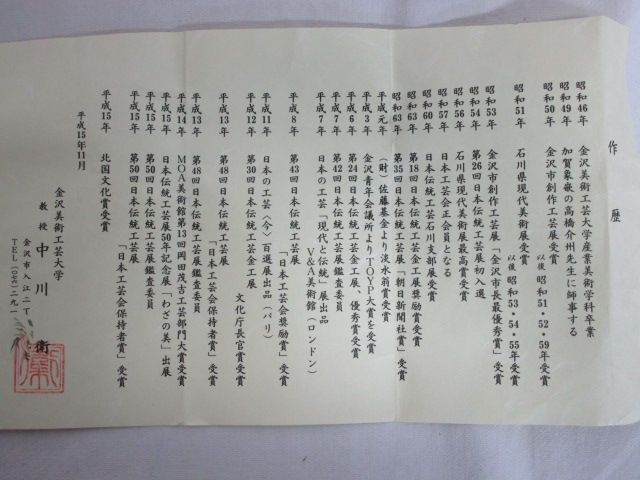 作歴
昭和46年 金沢美術工芸大学産業美術学科卒業
昭和49年 加賀象嵌の高橋介州先生に師事する
昭和50年 金沢市創作工芸展受賞
以後 昭和51・52・59年受賞
昭和51年 石川県現代美術展受賞
以後 昭和53・54・55年受賞
昭和53年 金沢市創作工芸展「金沢市長最優秀賞」受賞
昭和54年 第26回日本伝統工芸展初入選
昭和56年 石川県現代美術展最高賞受賞
昭和57年 日本工芸会正会員となる
昭和60年 日本伝統工芸石川支部展受賞
昭和63年 第18回日本伝統工芸金工展奨励賞受賞
昭和63年 第35回日本伝統工芸展「朝日新聞社賞」受賞
平成元年 (財)佐藤基金より淡水翁賞受賞
平成3年 金沢青年会議所よりTOYP大賞を受賞
平成6年 第24回日本伝統工芸金工展、優秀賞受賞
平成7年 第42回日本伝統工芸展鑑査委員
平成7年 日本の工芸「現代と伝統」展出品
V&A美術館(ロンドン)
平成8年 第43回日本伝統工芸展
「日本工芸会奨励賞」受賞
平成11年 日本の工芸〈今〉百選展出品(パリ)
平成12年 第30回日本伝統工芸金工展
文化庁長官賞受賞
平成13年 第48回日本伝統工芸展
「日本工芸会保持者賞」受賞
平成13年 第48回日本伝統工芸展鑑査委員
平成14年 MOA美術館第13回岡田茂吉工芸部門大賞受賞
平成15年 日本伝統工芸展50年記念展「わざの美」出展
平成15年 第50回日本伝統工芸展鑑査委員
平成15年 第50回日本伝統工芸展
「日本工芸会保持者賞」受賞
平成15年 北国文化賞受賞
平成15年11月
金沢美術工芸大学
教授 中川 衛
金沢市入江二丁
TEL